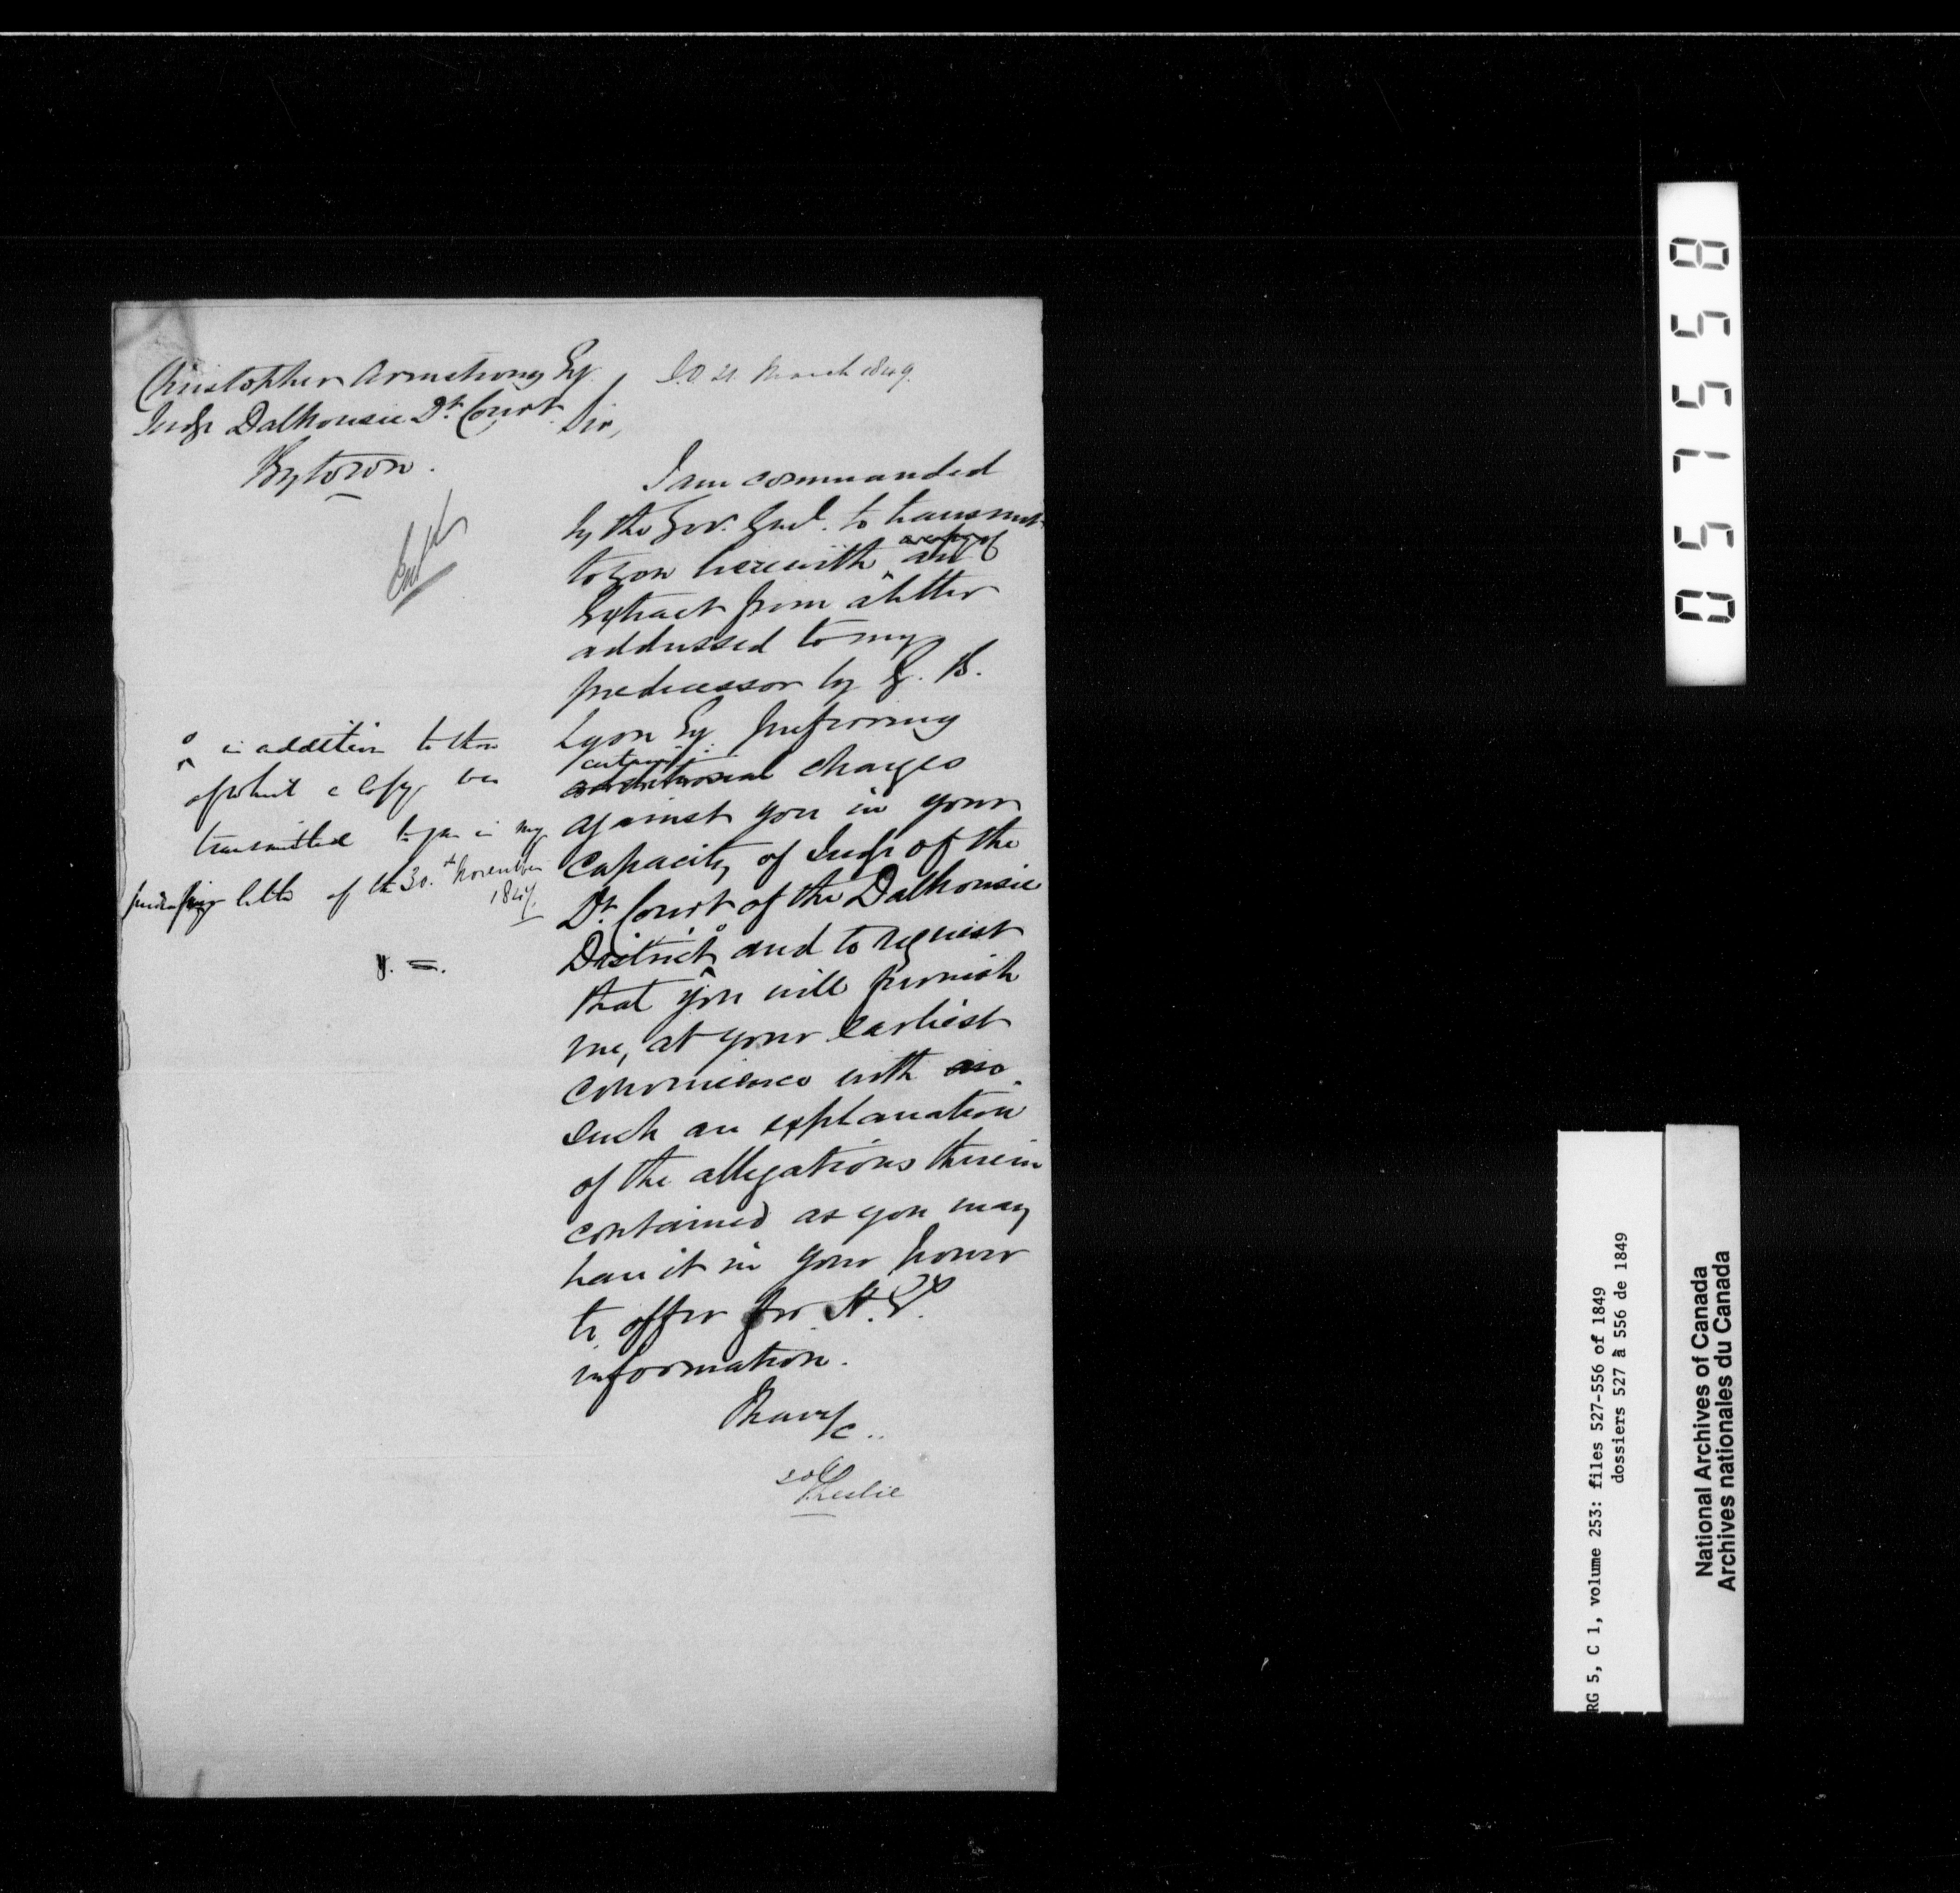 Christopher Armstrong Esq.
Judge Dalhousie Dt. Court
Bytown.
S.O. 21 March 1849.
Sir,
I am commanded
by the Gov. Genl. to transmit
to you herewith a copy of an
Extract from a letter
addressed to my
predecessor by G. B.
Lyon Esq preferring
certain additional charges
against you in your
capacity of Judge of the
Dt. Court of the Dalhousie
District, and to request
that you will furnish
me, at your earliest
convenience with
such an explanation
of the allegations therein
contained as you may
have it in your power
to offer for H. E.
information.
I have &c..
Leslie
Ent
in addition to those
of which a Copy was
transmitted to you in my
letter of the 30.th November
05755 8
RG 5, C 1, volume 253: files 527-556 of 1849
dossiers 527 à 556 de 1849
National Archives of Canada
Archives nationales du Canada